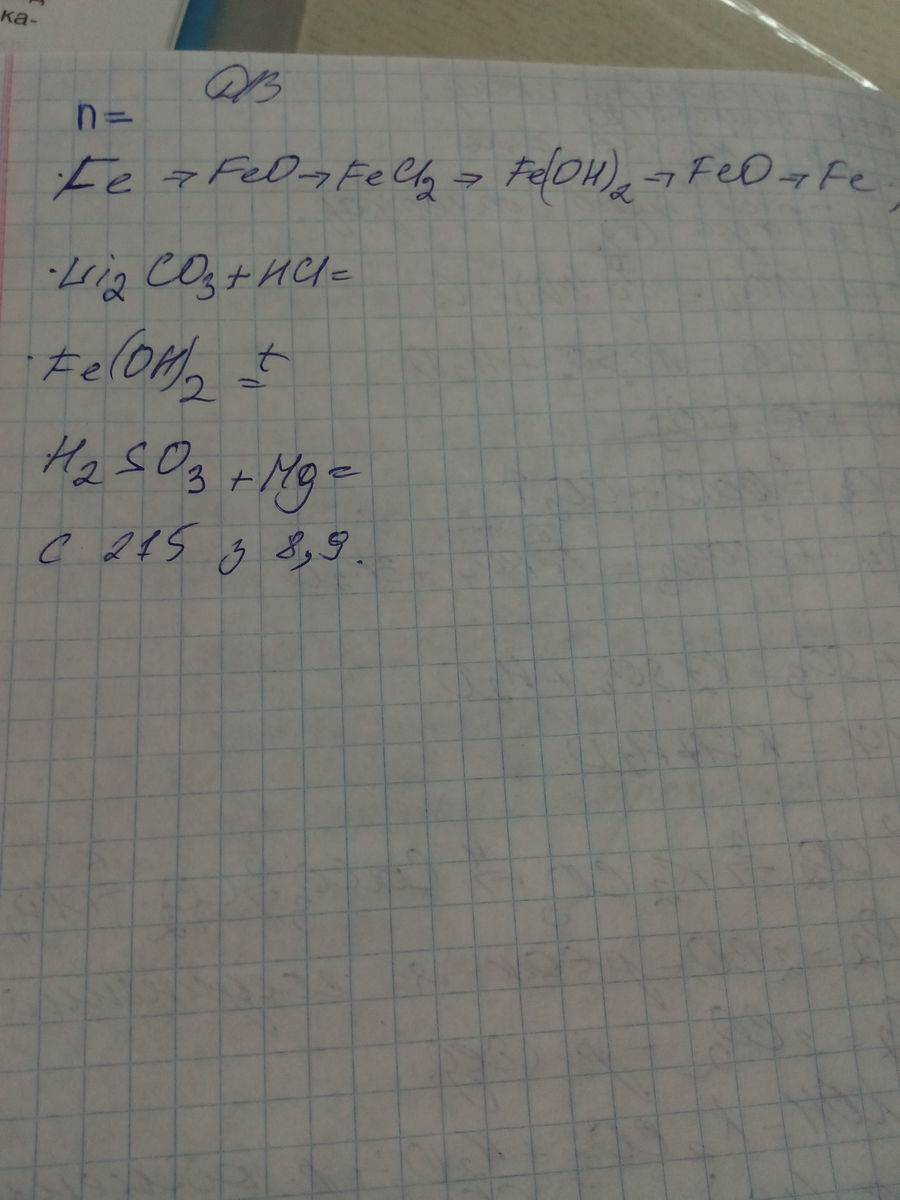 ка-
Д/З
n =
·Fe → FeO → FeCl₂ → Fe(OH)₂ → FeO → Fe,
·Li₂CO₃ + HCl =
·Fe(OH)₂ t=
·H₂SO₃ + Mg =
с 215 з 8,9.